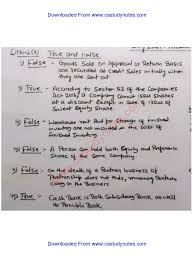 Downloaded From www.castudynotes.com
QNo-1(a) True and False
i) False - Goods Sold on Approval or Return Basis
are recorded as Credit Sales initially when
they are sent out
ii) True - According to Section 53 of the Companies
Act 2013, a Company cannot issue shares
at a discount Except in Case of issue of
Sweat Equity Share
iii) False - Warehouse rent Paid for Storage of finished
inventory are not included in the Cost of
finished Inventory
iv) False - A Person can hold both Equity and Preference
Share in the Same Company.
v) False - On the death of a Partner business of
Partnership does not ends, remaining Partners
Carry on the Business
vi) True - Cash Book is Both Subsidiary Book as well
as Principal Book.
Downloaded From www.castudynotes.com